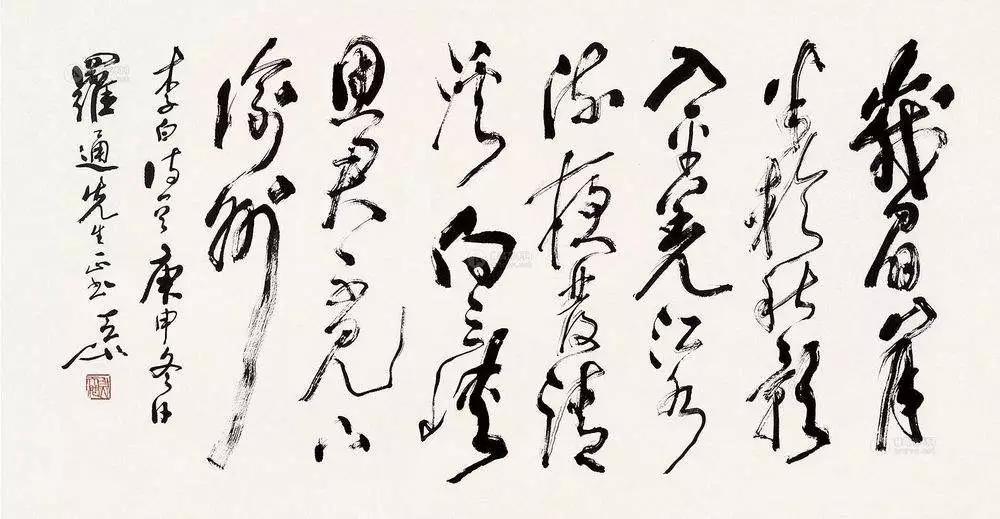 峩眉山月
半輪秋影
入平羌江水
流夜發清
溪向三峽
思君不見下
渝州
李白詩 庚申冬日
羅通先生正